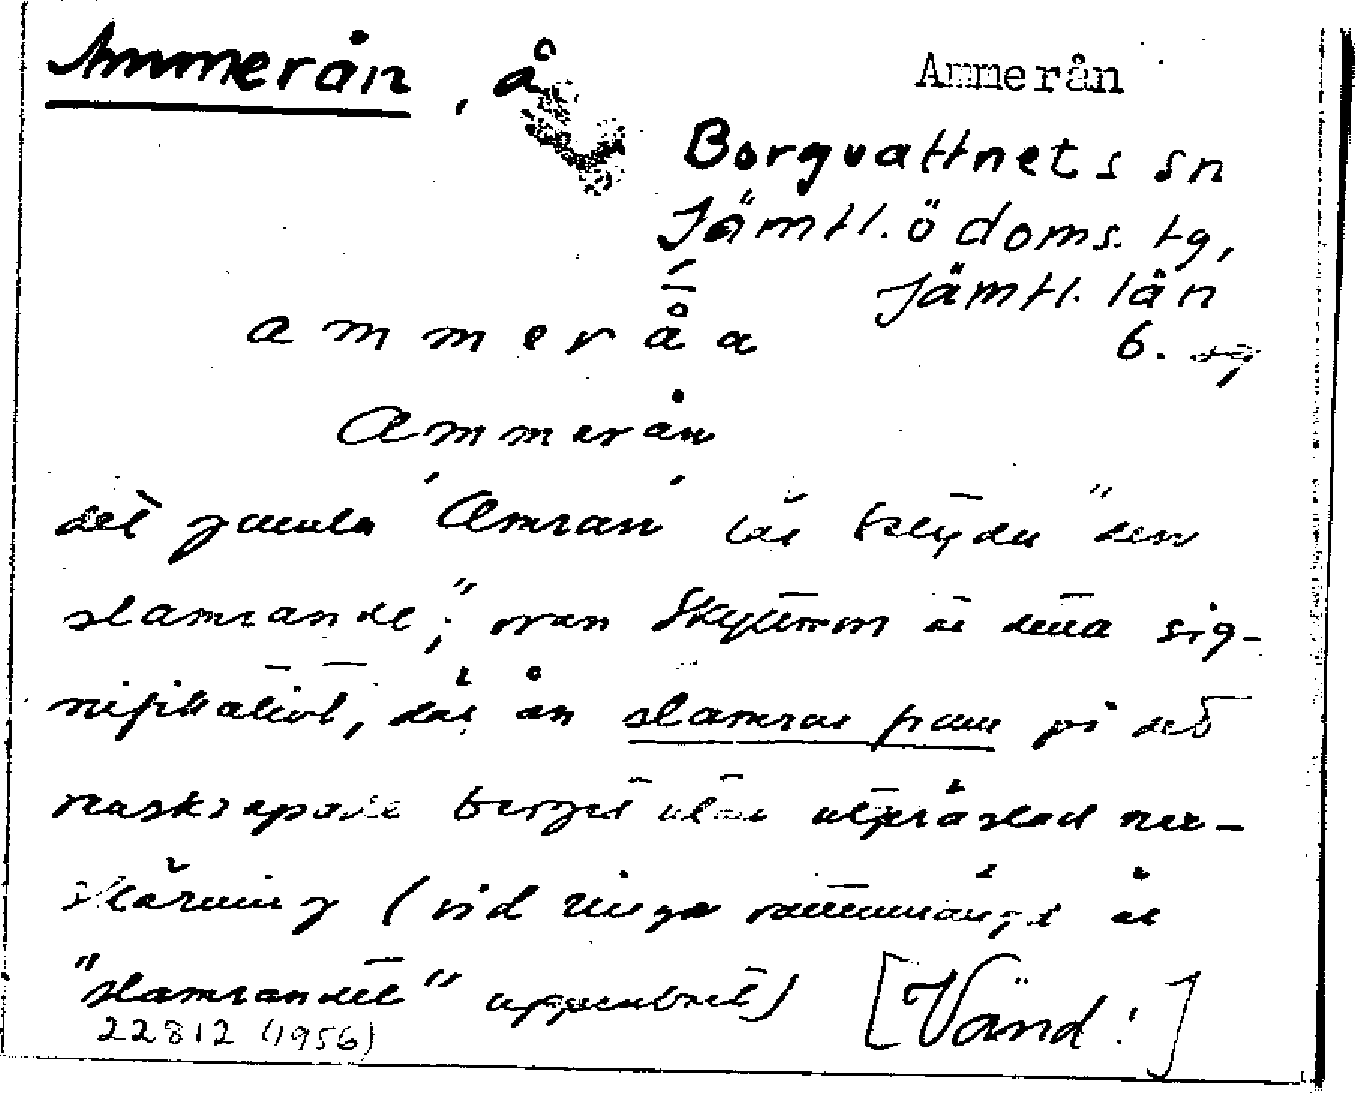 Ammerån, å
Ammerån
Borgvattnets sn
Jämtl. ö doms. tg,
Jämtl. län
6. sg
ammeråa
Ammerån
det gamla 'Amran' lär betyda "den
slamrande"; ovan Skyttmon är detta sig-
nifikativt, där ån slamrar fram på det
naskrapade berget utan utpräglad ner-
skärning (vid ringa vattenmängd är
"slamrandet" uppenbart)
[Vänd!]
22812 (1956)